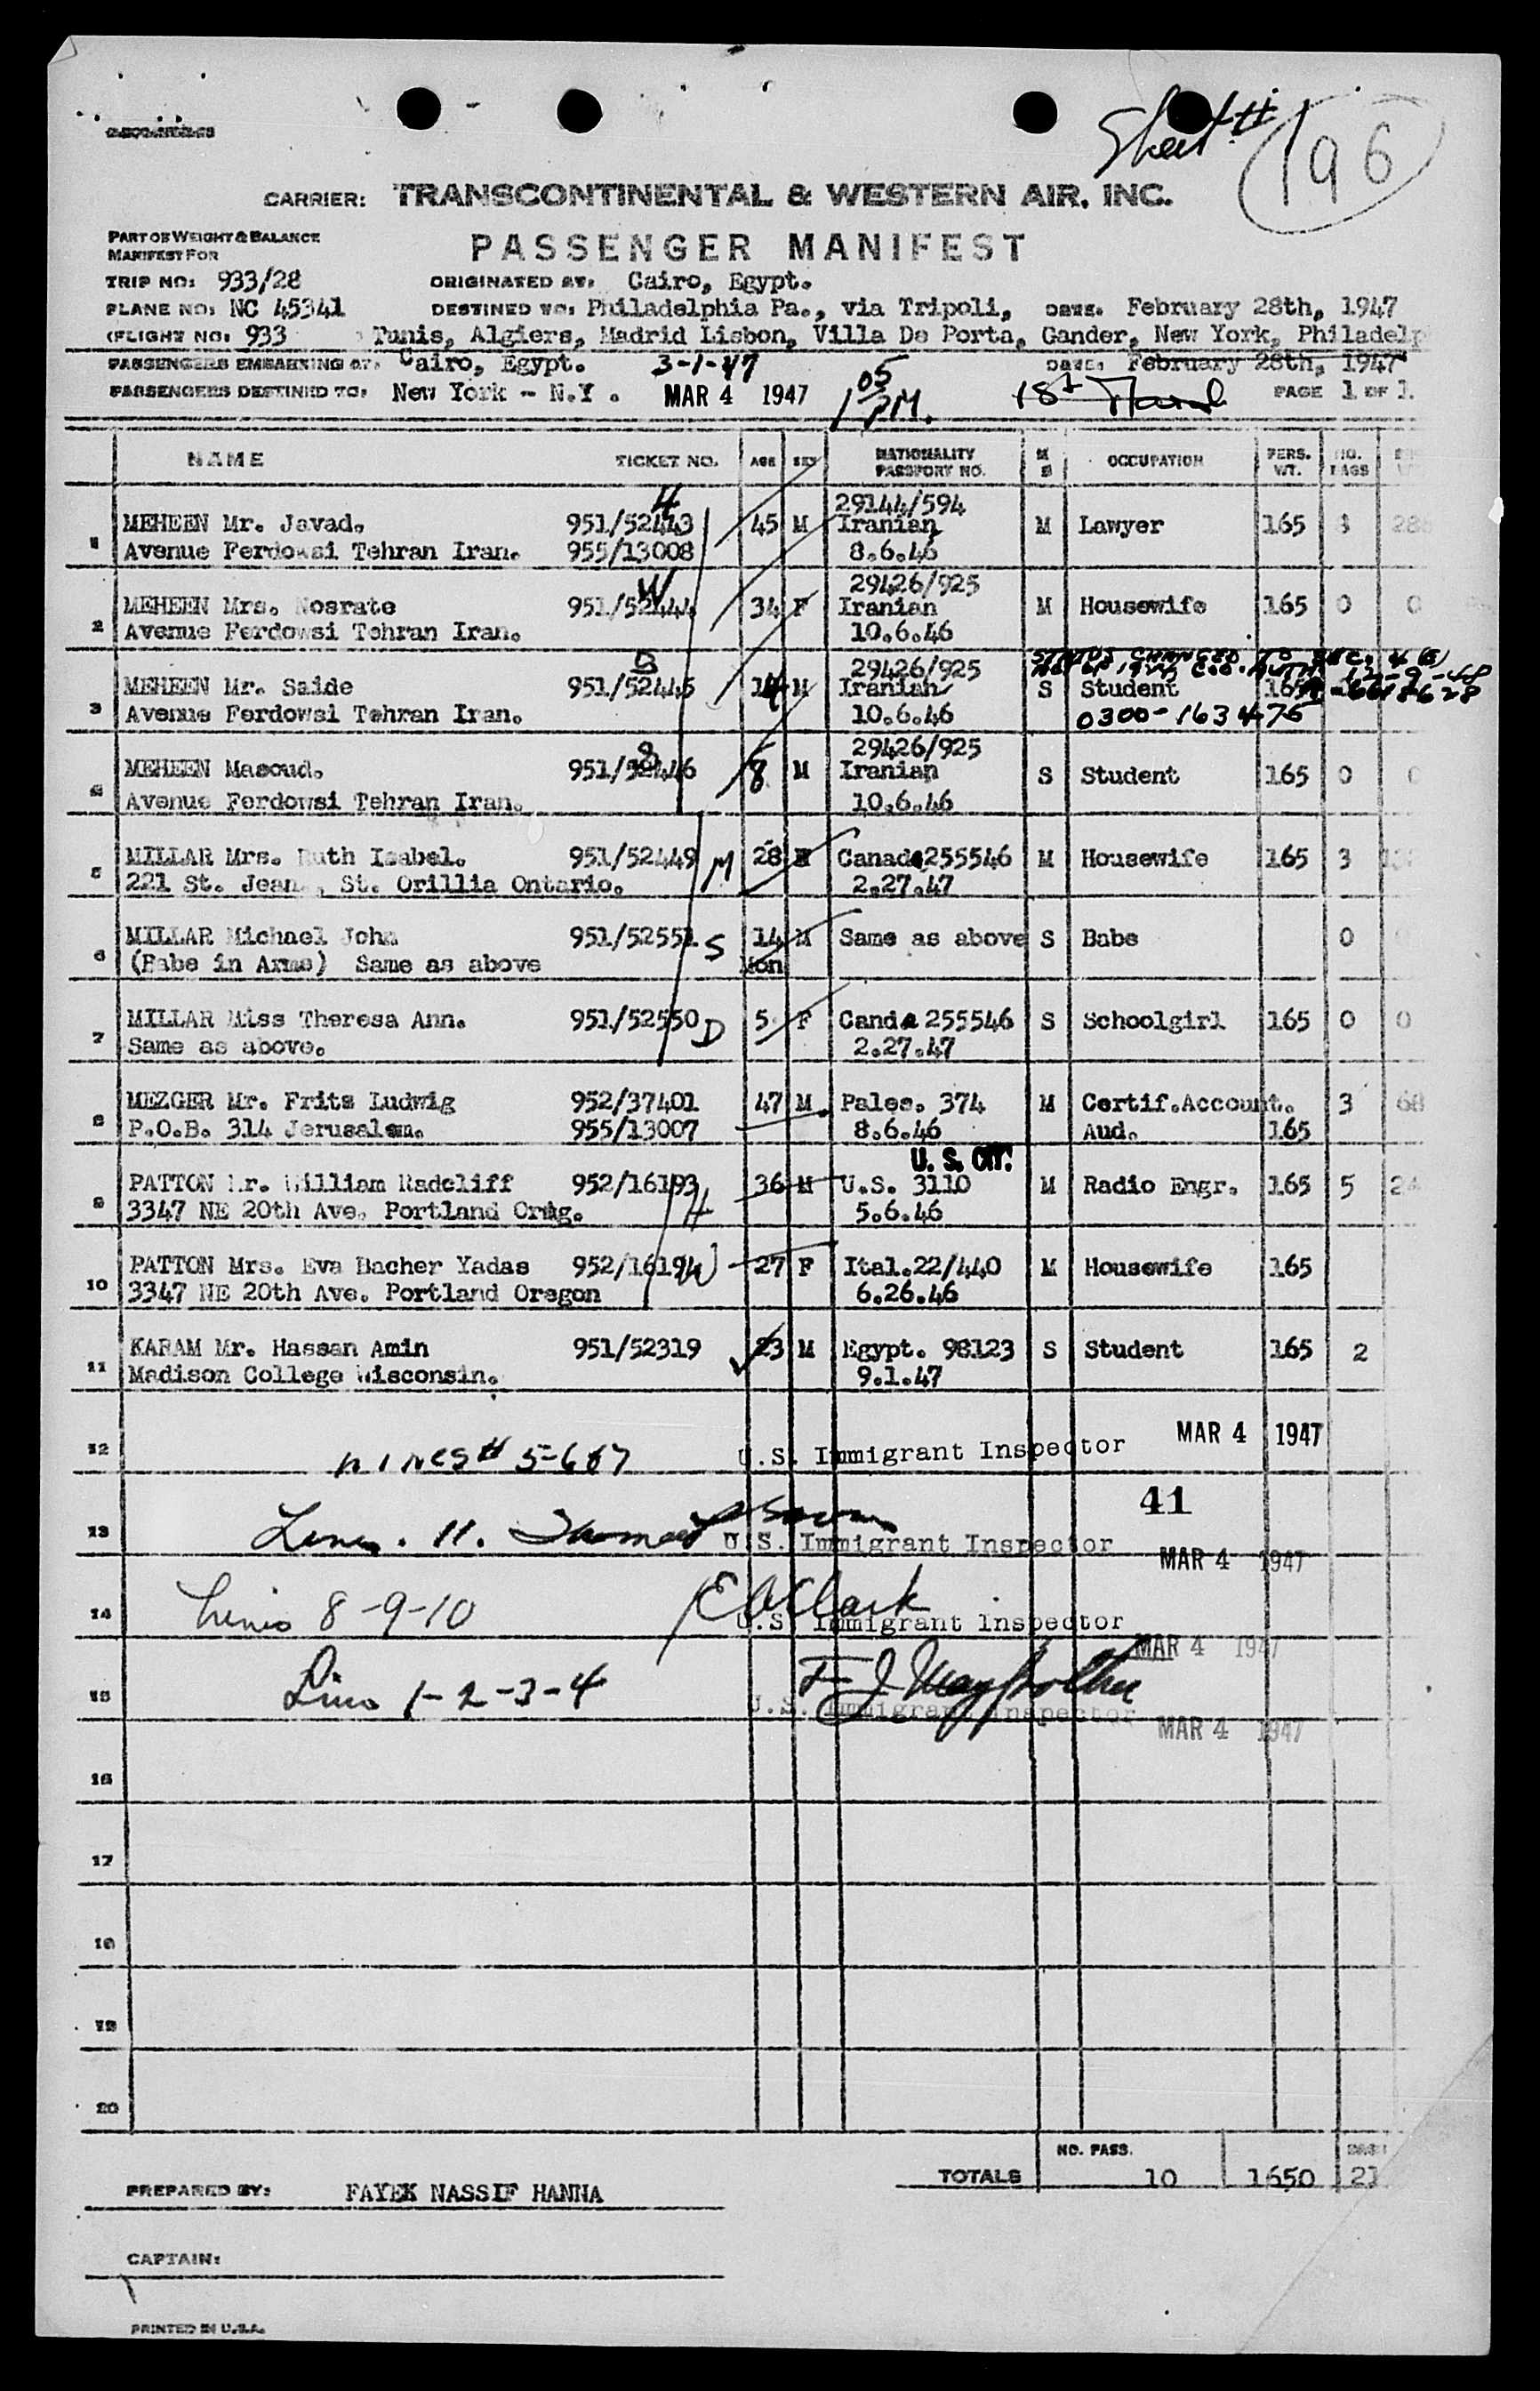 Sheet #
196
CARRIER: TRANSCONTINENTAL & WESTERN AIR, INC.
PART OF WEIGHT & BALANCE
MANIFEST FOR
PASSENGER MANIFEST
TRIP NO: 933/28 ORIGINATED AT: Cairo, Egypt.
PLANE NO: NC 45341 DESTINED TO: Philadelphia Pa., via Tripoli, DATE: February 28th, 1947
(FLIGHT NO: 933 ) Tunis, Algiers, Madrid Lisbon, Villa De Porta, Gander, New York, Philadelp
PASSENGERS EMBARKING AT: Cairo, Egypt. 3-1-47 DATE: February 28th, 1947
PASSENGERS DESTINED TO: New York - N.Y. MAR 4 1947 1 05 P.M. 1st March PAGE 1 OF 1.
NAME TICKET NO. AGE SEX NATIONALITY PASSPORT NO. M S OCCUPATION PERS. WT. NO. BAGS
H 29144/594
1 MEHEEN Mr. Javad. 951/52443 45 M Iranian M Lawyer 165
Avenue Ferdowsi Tehran Iran. 955/13008 8.6.46
W 29426/925
2 MEHEEN Mrs. Nosrate 951/52444 34 F Iranian M Housewife 165 0 0
Avenue Ferdowsi Tehran Iran. 10.6.46
STATUS CHANGED TO SEC. 4 (e)
S 29426/925
3 MEHEEN Mr. Saide 951/52445 14 M Iranian S Student 165
Avenue Ferdowsi Tehran Iran. 10.6.46 0300-163476
S 29426/925
4 MEHEEN Masoud. 951/52446 8 M Iranian S Student 165 0 0
Avenue Ferdowsi Tehran Iran. 10.6.46
5 MILLAR Mrs. Ruth Isabel. 951/52449 M 28 Canada 255546 M Housewife 165 3
221 St. Jean , St. Orillia Ontario. 2.27.47
6 MILLAR Michael John 951/52551 S 14 M Same as above S Babe 0
(Babe in Arms) Same as above Mon
7 MILLAR Miss Theresa Ann. 951/52550 D 5 F Canda 255546 S Schoolgirl 165 0 0
Same as above. 2.27.47
8 MEZGER Mr. Frits Ludwig 952/37401 47 M Pales. 374 M Certif.Account. 3 68
P.O.B. 314 Jerusalem. 955/13007 8.6.46 Aud. 165
U. S. CIT.
9 PATTON Mr. William Radcliff 952/16193 H 36 M U.S. 3110 M Radio Engr. 165 5 24
3347 NE 20th Ave. Portland Oreg. 5.6.46
10 PATTON Mrs. Eva Bacher Yadas 952/16194 W 27 F Ital.22/440 M Housewife 165
3347 NE 20th Ave. Portland Oregon 6.26.46
11 KARAM Mr. Hassan Amin 951/52319 23 M Egypt. 98123 S Student 165 2
Madison College Wisconsin. 9.1.47
12 Lines # 5-6&7 U.S. Immigrant Inspector MAR 4 1947
41
13 Lines. 11. U.S. Immigrant Inspector MAR 4 1947
14 Lines 8-9-10 E A Clark U.S. Immigrant Inspector MAR 4 1947
15 Lines 1-2-3-4 F. J. U.S. Immigrant Inspector MAR 4 1947
16
17
18
19
20
TOTALS NO. PASS. 10 1650 21
PREPARED BY: FAYEK NASSIF HANNA
CAPTAIN:
PRINTED IN U.S.A.